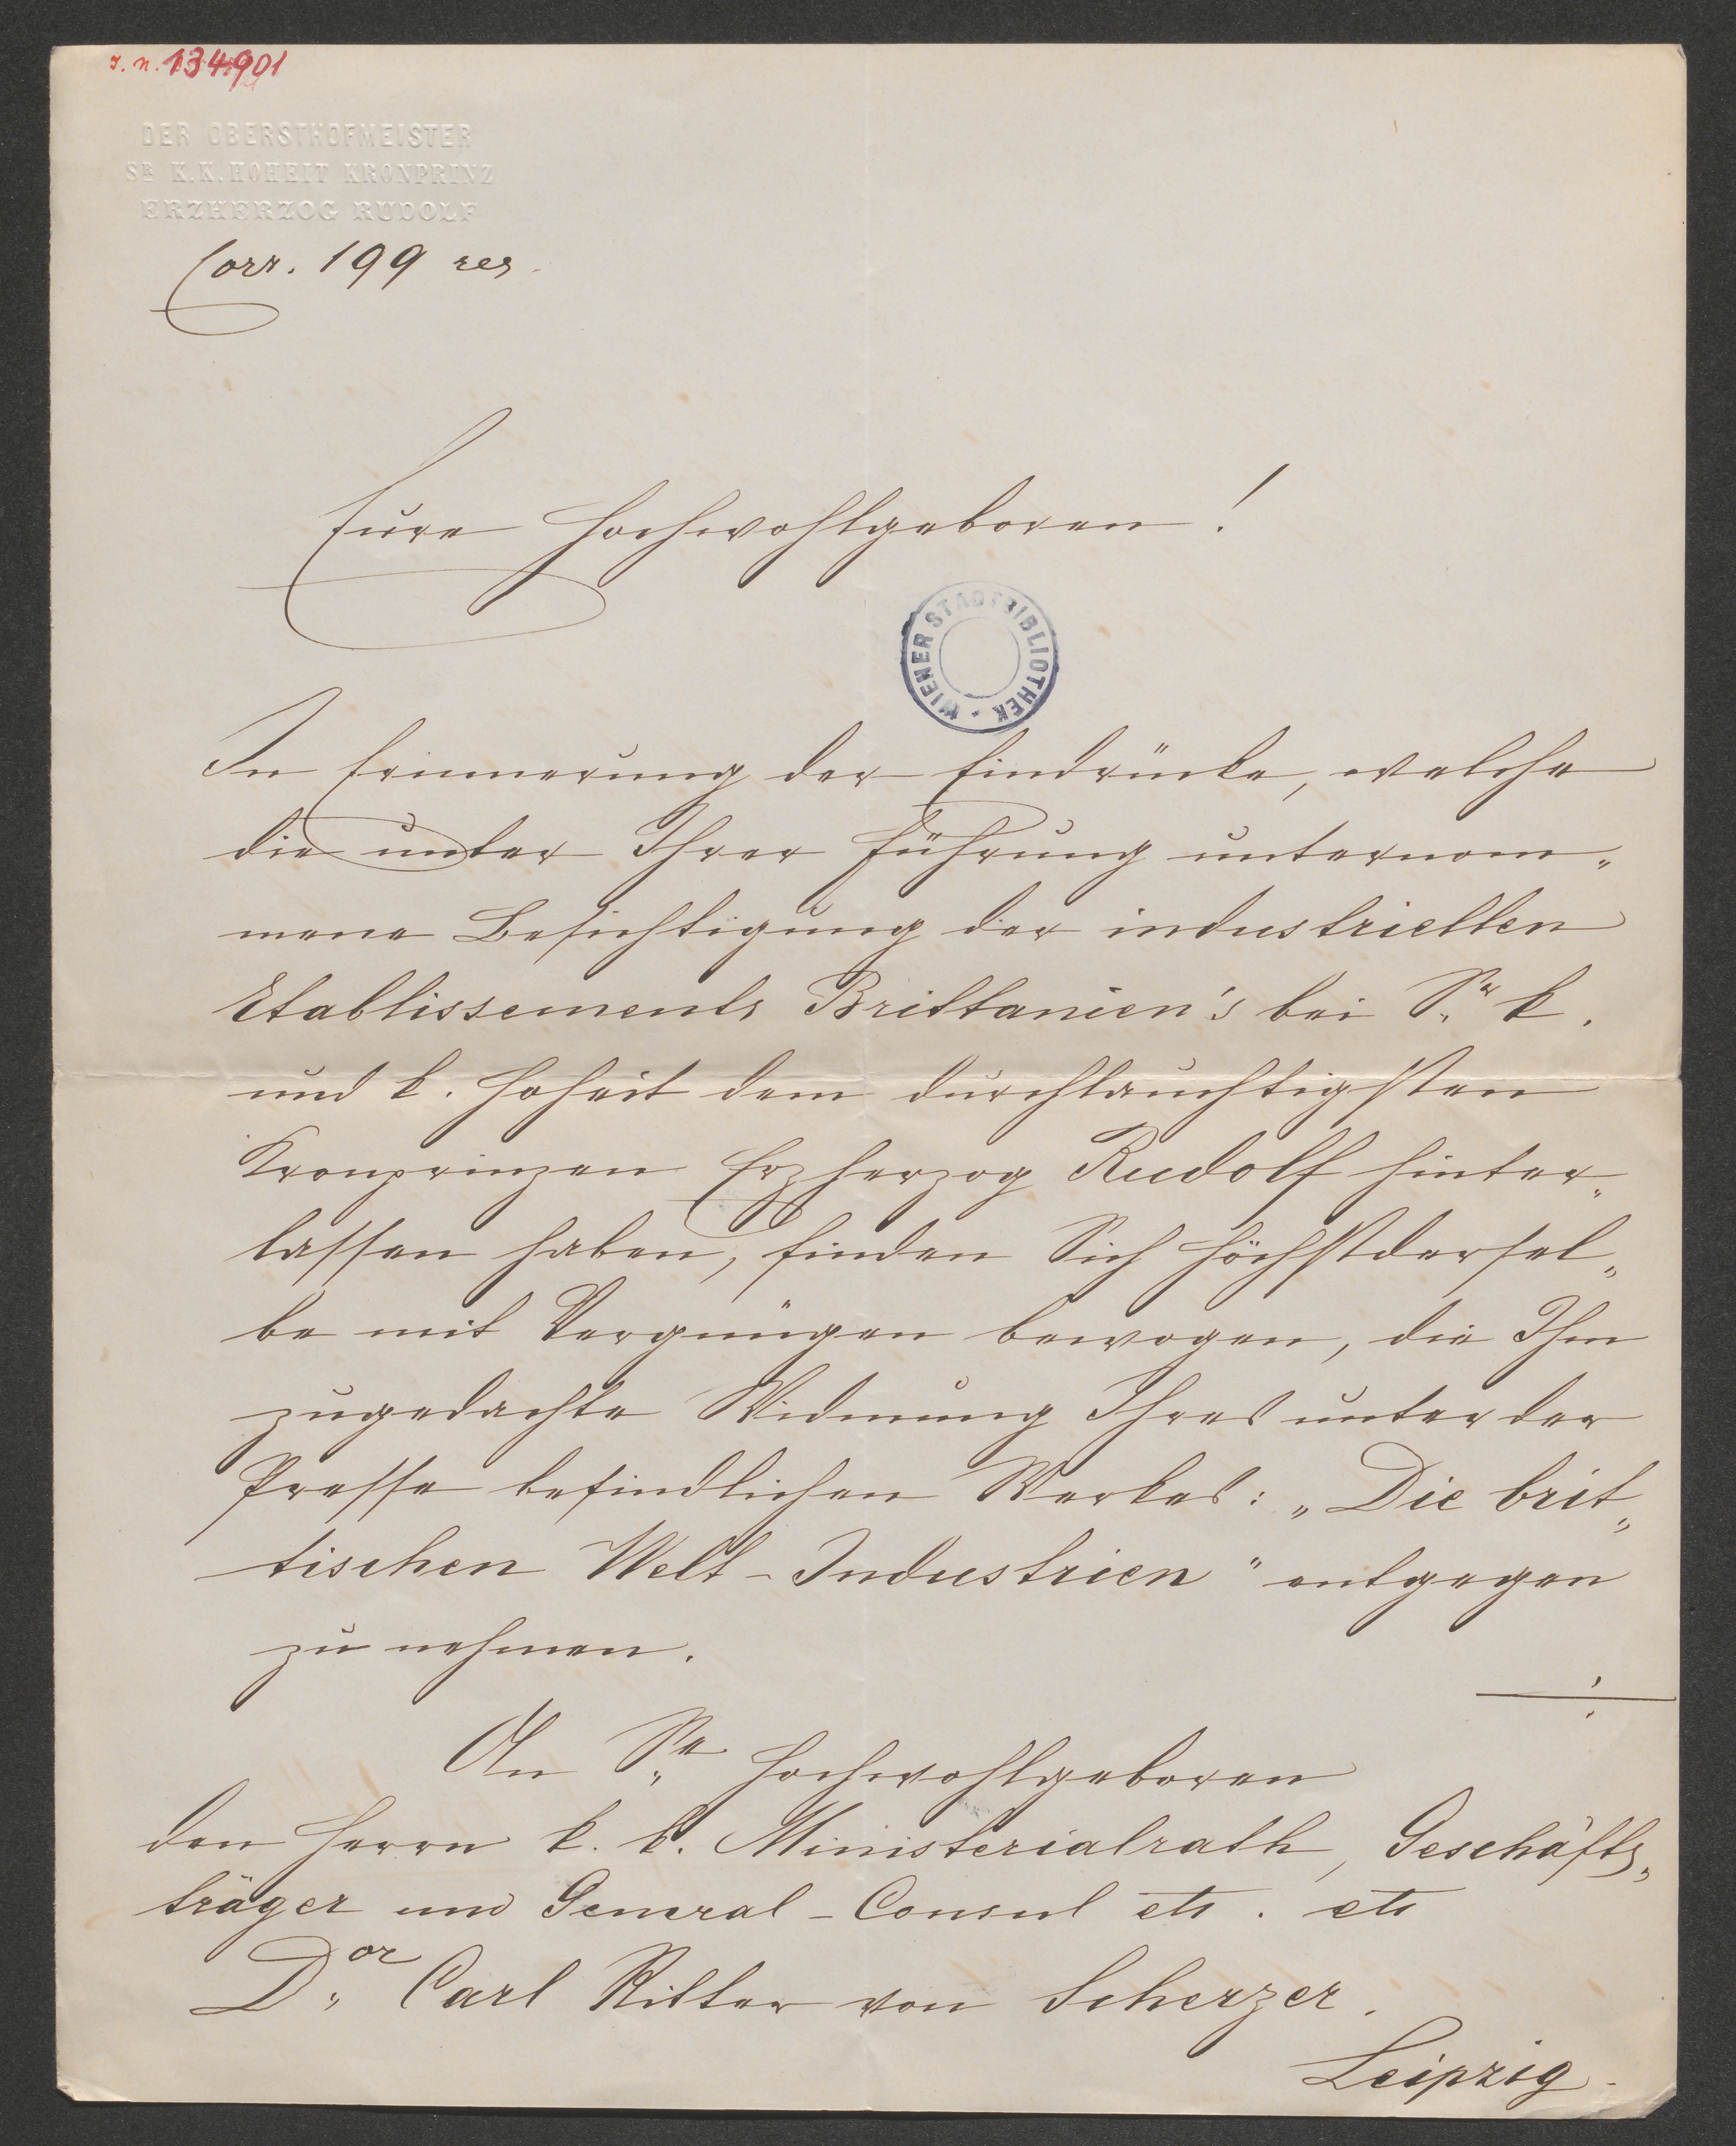 I. N. 134901
DER OBERSTHOFMEISTER
SR K. K. HOHEIT KRONPRINZ
ERZHERZOG RUDOLF
Corr. 199 res.
Eure Hochwohlgeboren!
WIENER STADTBIBLIOTHEK
In Erinnerung der Eindrücke, welche
die unter Ihrer Führung unternom„
mene Besichtigung der industriellen
Etablissements Brittanien's bei Sr k.
und k. Hoheit dem durchlauchtigsten
Kronprinzen Erzherzog Rudolf hinter„
lassen haben, finden Sich Höchstdersel„
be mit Vergnügen bewogen, die Ihm
zugedachte Widmung Ihres unter der
Presse befindlichen Werkes: „Die brit„
tischen Welt-Industrien" entgegen
zu nehmen.
./.
An Se Hochwohlgeboren
den Herrn k. k. Ministerialrath, Geschäfts„
träger und General-Consul etc. etc
Dor Carl Ritter von Scherzer.
Leipzig.